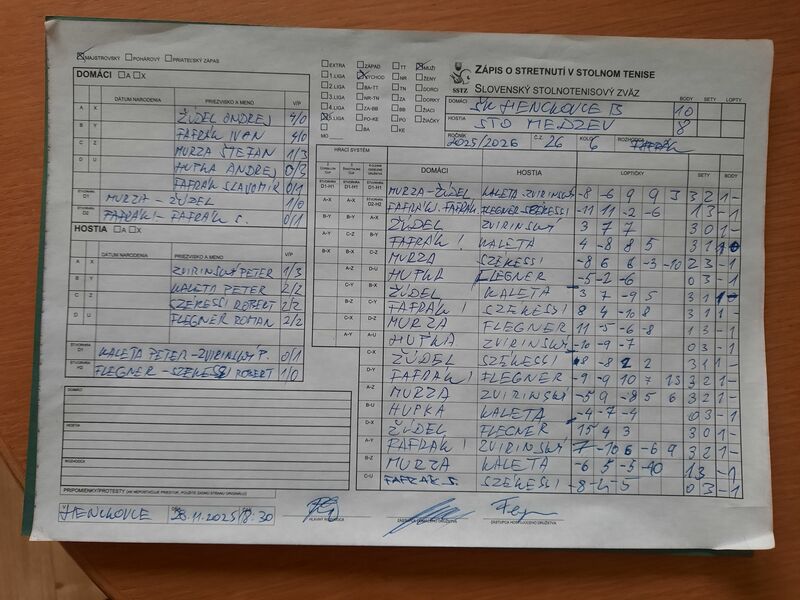 MAJSTROVSKÝ POHÁROVÝ PRIATEĽSKÝ ZÁPAS
DOMÁCI A X
DÁTUM NARODENIA PRIEZVISKO A MENO V/P
A X ŽÍDEL ONDREJ 4/0
B Y FAFRÁK IVAN 4/0
C Z MURZA ŠTEFAN 1/3
D U HUPKA ANDREJ 0/3
FAFRÁK SLAVOMÍR 0/1
ŠTVORHRA D1 MURZA - ŽÍDEL 1/0
ŠTVORHRA D2 FAFRÁK I - FAFRÁK S. 0/1
HOSTIA A X
DÁTUM NARODENIA PRIEZVISKO A MENO V/P
A X ZVIRINSKÝ PETER 1/3
B Y KALETA PETER 2/2
C Z SZÉKESSI RÓBERT 2/2
D U FLEGNER ROMAN 2/2
ŠTVORHRA KALETA PETER - ZVIRINSKÝ P. 0/1
ŠTVORHRA H2 FLEGNER - SZEKESSI RÓBERT 1/0
DOMÁCI
HOSTIA
ROZHODCA
PRIPOMIENKY/PROTESTY (AK NEPOSTAČUJE PRIESTOR, POUŽITE ZADNÚ STRANU ORIGINÁLU)
HENCKOVCE 28.11.2025 18:30
HLAVNÝ ROZHODCA
ZÁSTUPCA DOMÁCEHO DRUŽSTVA
ZÁSTUPCA HOSŤUJÚCEHO DRUŽSTVA
EXTRA ZÁPAD TT MUŽI
1. LIGA VÝCHOD NR ŽENY
2. LIGA BA-TT TN DORKY
3. LIGA NR-TN ZA DORKY
4. LIGA ZA-BB BB ŽIACI
5. LIGA PO-KE PO ŽIAČKY
BA KE
MO
SSTZ
ZÁPIS O STRETNUTÍ V STOLNOM TENISE
SLOVENSKÝ STOLNOTENISOVÝ ZVÄZ
BODY SETY LOPTY
DOMÁCI ŠK HENCKOVCE B 10
HOSTIA STO MEDZEV 8
ROČNÍK 2025/2026 Č.Z. 26 KOLO 6 ROZHODCA FAFRÁK
HRACÍ SYSTÉM
DOMÁCI HOSTIA LOPTIČKY SETY BODY
MURZA - ŽÍDEL KALETA - ZVIRINSKÝ -8 -6 9 9 3 3 2 1 -
FAFRÁK - FAFRÁK FLEGNER - SZEKESSI -11 11 -2 -6 1 3 - 1
ŽÍDEL ZVIRINSKÝ 3 7 7 3 0 1 -
FAFRÁK I KALETA 4 -8 8 5 3 1
MURZA SZÉKESSI -8 6 6 -3 -10 2 3 - 1
HUPKA FLEGNER -5 -2 -6 0 3 - 1
ŽÍDEL KALETA 3 7 -9 5 3 1 1 -
FAFRÁK I SZEKESSI 8 4 -10 8 3 1 1 -
MURZA FLEGNER 11 -5 -6 -8 1 3 - 1
HUPKA ZVIRINSKÝ -10 -9 -7 0 3 - 1
ŽÍDEL SZÉKESSI 8 -8 2 2 3 1 1 -
FAFRÁK I FLEGNER -9 -9 10 7 13 3 2 1 -
MURZA ZVIRINSKÝ -5 9 -8 5 6 3 2 1 -
HUPKA KALETA -4 -7 -4 0 3 - 1
ŽÍDEL FLEGNER 15 4 3 3 0 1 -
FAFRÁK I ZVIRINSKÝ 7 -10 6 -6 9 3 2 1 -
MURZA KALETA -6 5 -5 -10 1 3 - 1
FAFRÁK S. SZÉKESSI -8 -4 -5 0 3 - 1